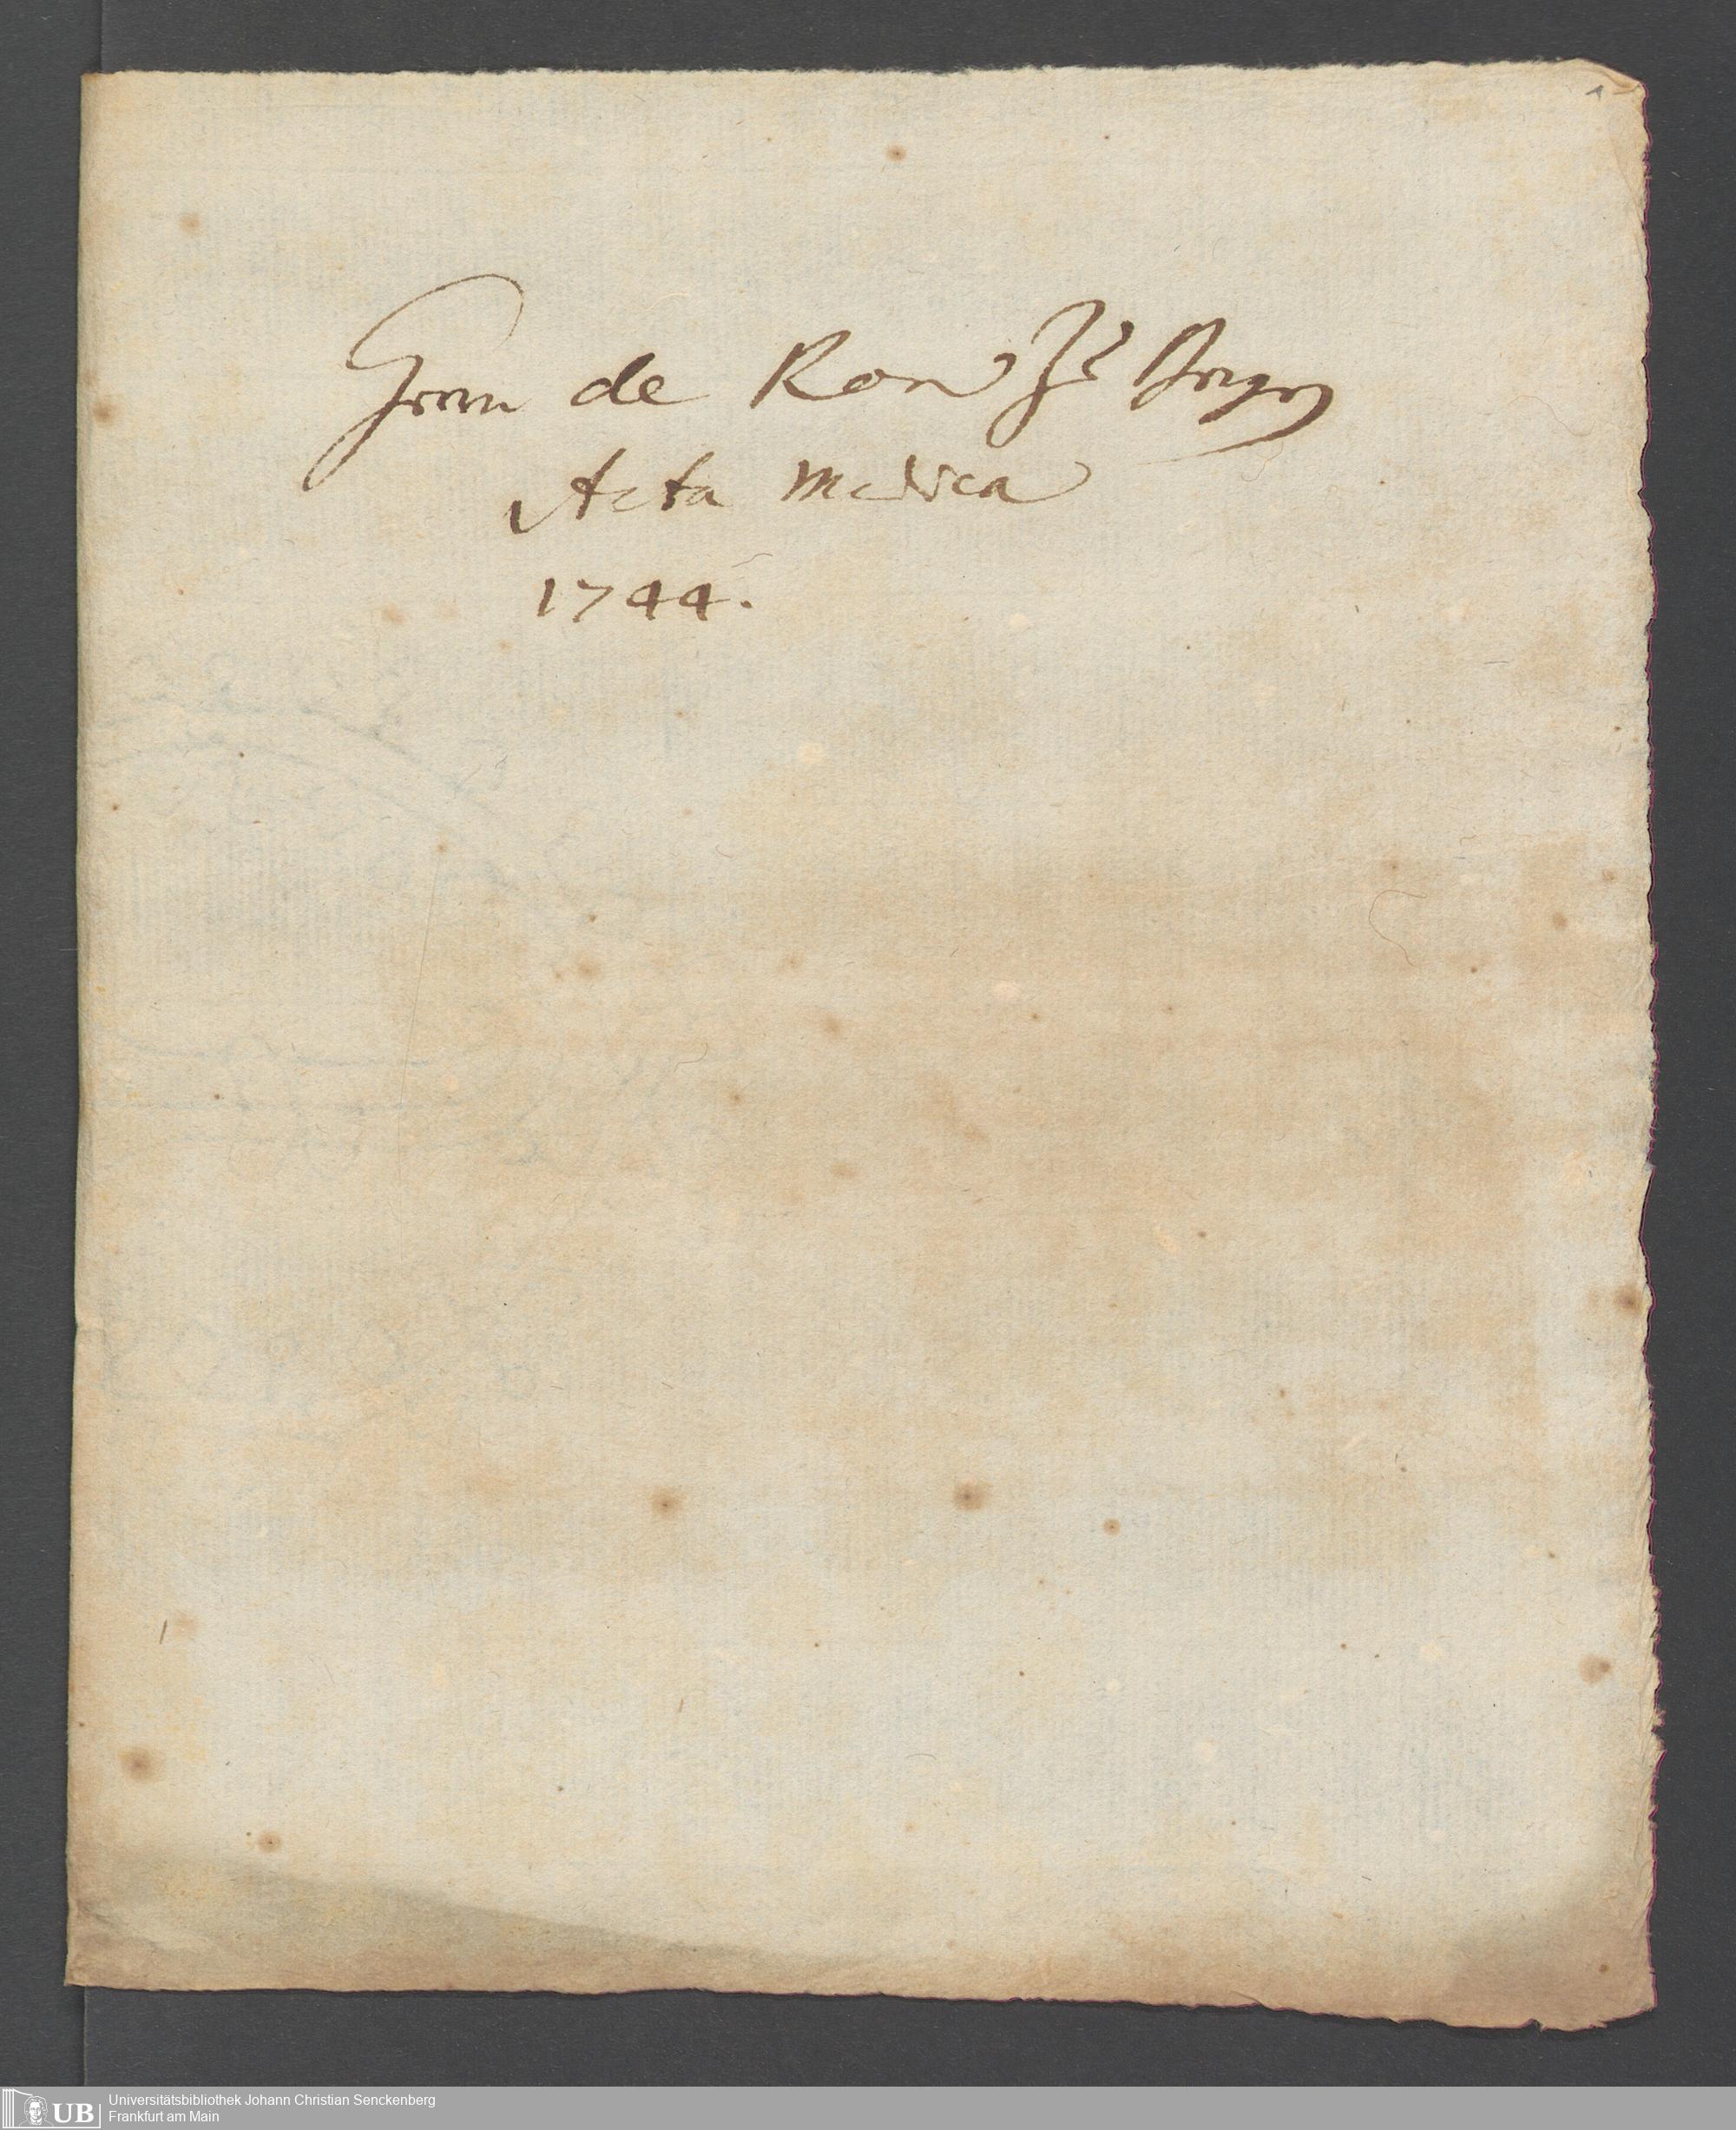 Herrn de Ron
Acta Medica
1744.
Universitätsbibliothek Johann Christian Senckenberg
Frankfurt am Main
UB